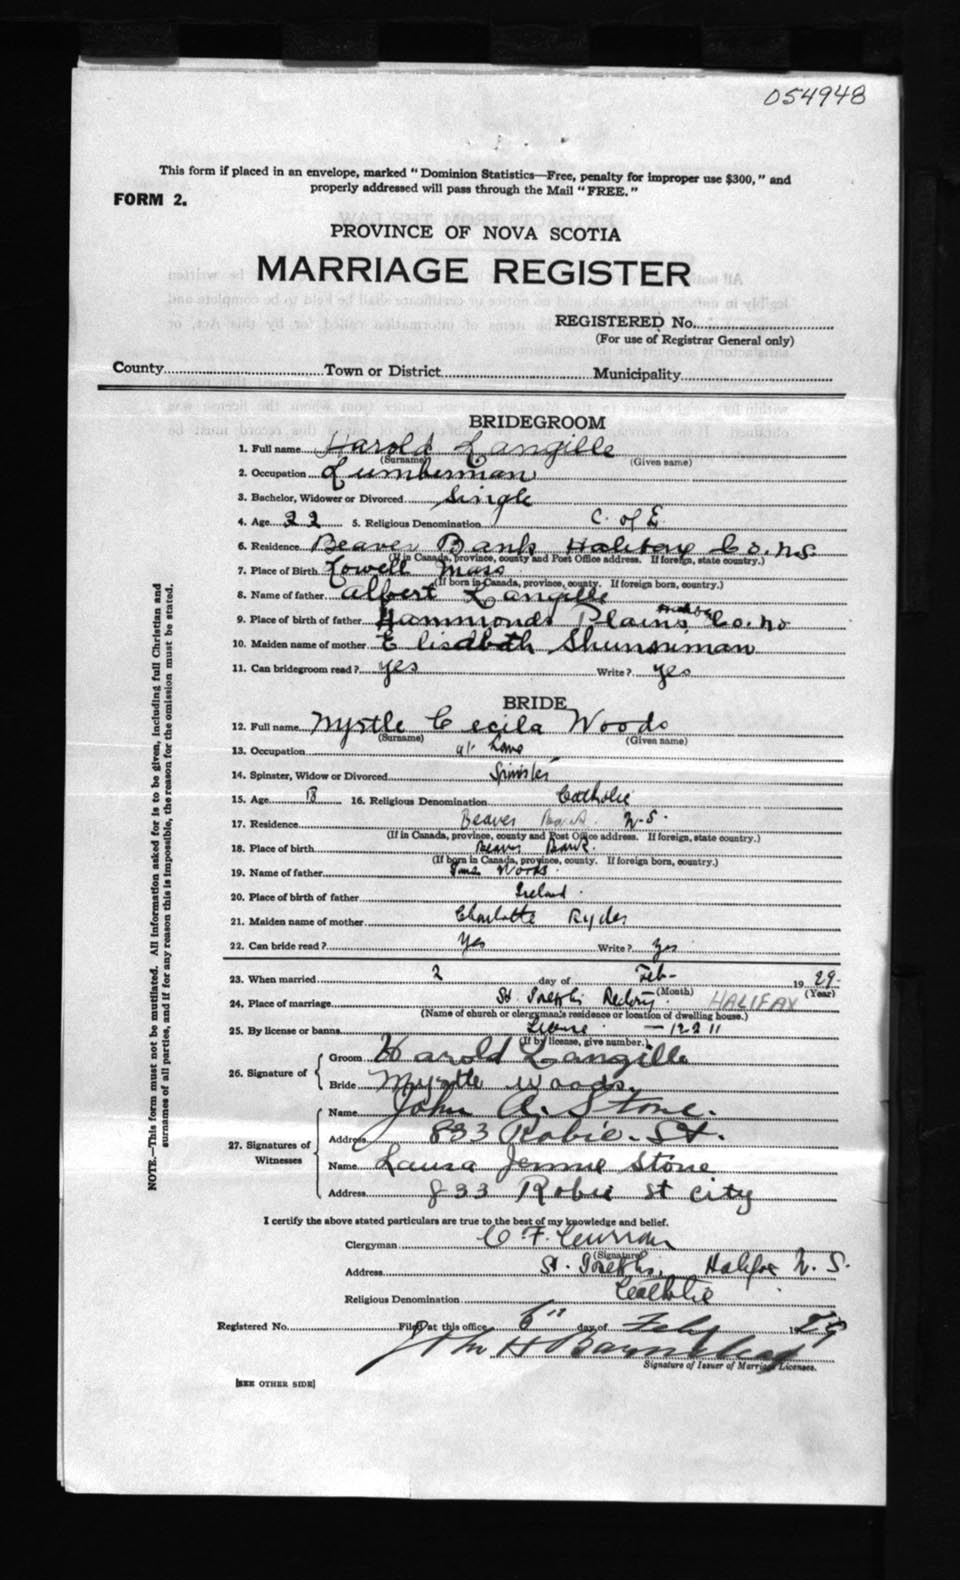 054948
This form if placed in an envelope, marked "Dominion Statistics—Free, penalty for improper use $300," and
properly addressed will pass through the Mail "FREE."
FORM 2.
PROVINCE OF NOVA SCOTIA
MARRIAGE REGISTER
REGISTERED No.
(For use of Registrar General only)
County Town or District Municipality
BRIDEGROOM
1. Full name Harold Langille
(Surname) (Given name)
2. Occupation Lumberman
3. Bachelor, Widower or Divorced Single
4. Age 22 5. Religious Denomination C. of E
6. Residence Beaver Bank Halifax Co. N.S.
(If in Canada, province, county and Post Office address. If foreign, state country.)
7. Place of Birth Lowell Mass
(If born in Canada, province, county. If foreign born, country.)
8. Name of father Albert Langille
9. Place of birth of father Hammonds Plains Co. NS
10. Maiden name of mother
11. Can bridegroom read? yes Write? yes
BRIDE
12. Full name Myrtle Cecila Woods
(Surname) (Given name)
13. Occupation at home
14. Spinster, Widow or Divorced Spinster
15. Age 18 16. Religious Denomination Catholic
17. Residence Beaver Bank N.S.
(If in Canada, province, county and Post Office address. If foreign, state country.)
18. Place of birth Beaver Bank.
(If born in Canada, province, county. If foreign born, country.)
19. Name of father Woods
20. Place of birth of father Ireland
21. Maiden name of mother Charlotte Ryder
22. Can bride read? Yes Write? yes
23. When married 2 day of Feb- 1929
(Month) (Year)
24. Place of marriage St. Joseph's Rectory HALIFAX
(Name of church or clergyman's residence or location of dwelling house.)
25. By license or banns License — 12211
(If by license, give number.)
26. Signature of
Groom Harold Langille
Bride Myrtle Woods
27. Signatures of Witnesses
Name John A. Stone.
Address 833 Robie. St.
Name Laura Jennie Stone
Address 833 Robie St City
I certify the above stated particulars are true to the best of my knowledge and belief.
Clergyman C. F. Curran
(Signature)
Address St. Joseph's, Halifax N. S.
Religious Denomination Catholic
Registered No. Filed at this office 6" day of Feby 1929
John H Barnstead
Signature of Issuer of Marriage Licenses.
[SEE OTHER SIDE]
NOTE.—This form must not be mutilated. All information asked for is to be given, including full Christian and
surnames of all parties, and if for any reason this is impossible, the reason for the omission must be stated.